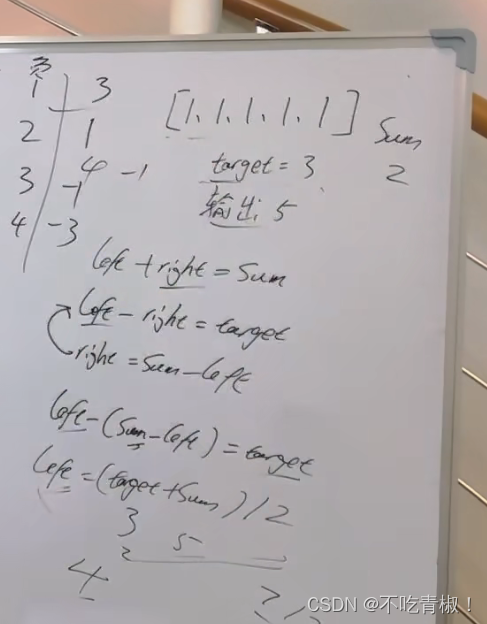 负
1 3
[1,1,1,1,1]
2 1
Sum
3 4 -1
-1
target = 3
2
输出: 5
4 -3
left + right = Sum
left - right = target
right = Sum - left
left - (Sum - left) = target
left = (target + Sum) / 2
3
2 5
4
2 /
CSDN @不吃青椒！